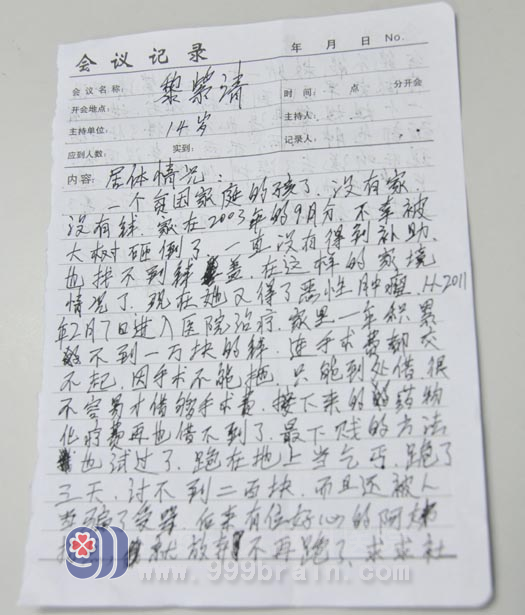 会议记录 年 月 日 No.
会议名称: 黎荣清 时间: 点 分开会
开会地点: 主持人:
主持单位: 14岁 记录人:
应到人数: 实到:
内容: 居体情况:
一个贫困家庭的孩了,没有家,
没有钱,家在2003年的9月分,不幸被
大树砸倒了,一直没有得到补助,
也找不到钱盖,在这样的家境
情况了,现在她又得了恶性肿瘤,从2011
年2月7日进入医院治疗,家里一年积累
不到一万块的钱,连手术费都交
不起,因手术不能拖,只能到处借,很
不容易才借够手术费,接下来的药物
化疗费再也借不到了,最下贱的方法
也试过了,跑在地上当乞丐,跑了
三天,讨不到二百块,而且还被人
骗了受罪,后来有位好心的阿姨
就放弃不再跑了,求求社
999
www.999brain.com